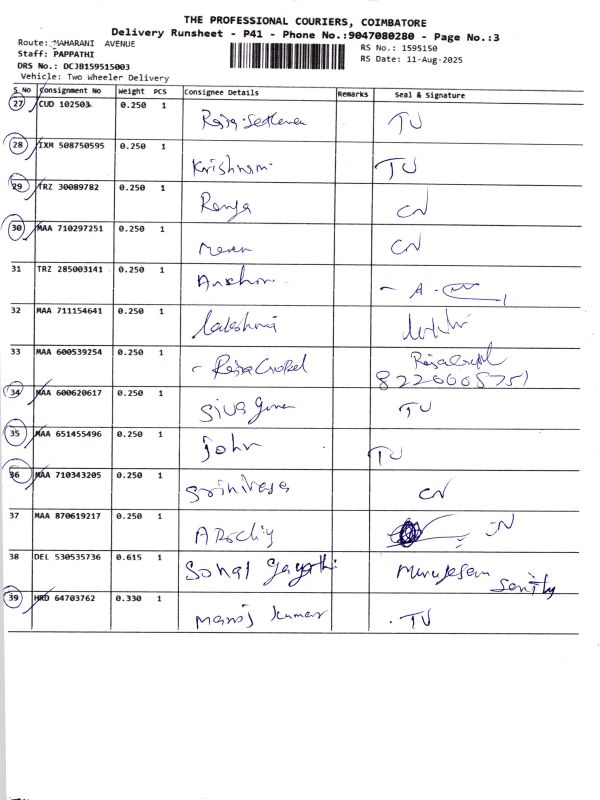 THE PROFESSIONAL COURIERS, COIMBATORE
Delivery Runsheet - P41 - Phone No.:9047080280 - Page No.:3
Route: MAHARANI AVENUE
RS No.: 1595150
Staff: PAPPATHI
RS Date: 11-Aug-2025
DRS No.: DCJB159515003
Vehicle: Two Wheeler Delivery
S No Consignment No Weight PCS Consignee Details Remarks Seal & Signature
27 CUD 102503 0.250 1 TU
28 IXM 508750595 0.250 1 Krishnam TU
29 TRZ 30089782 0.250 1 Renga CN
30 MAA 710297251 0.250 1 CN
31 TRZ 285003141 0.250 1
32 MAA 711154641 0.250 1 Lakshmi
33 MAA 600539254 0.250 1 - RajaGopal RajaGopal
8220005751
34 MAA 600620617 0.250 1 TU
35 MAA 651455496 0.250 1 John TU
36 MAA 710343205 0.250 1 Srinivasa CN
37 MAA 870619217 0.250 1
38 DEL 530535736 0.615 1 Murugesan
39 HRD 64703762 0.330 1 Manoj kumar TU